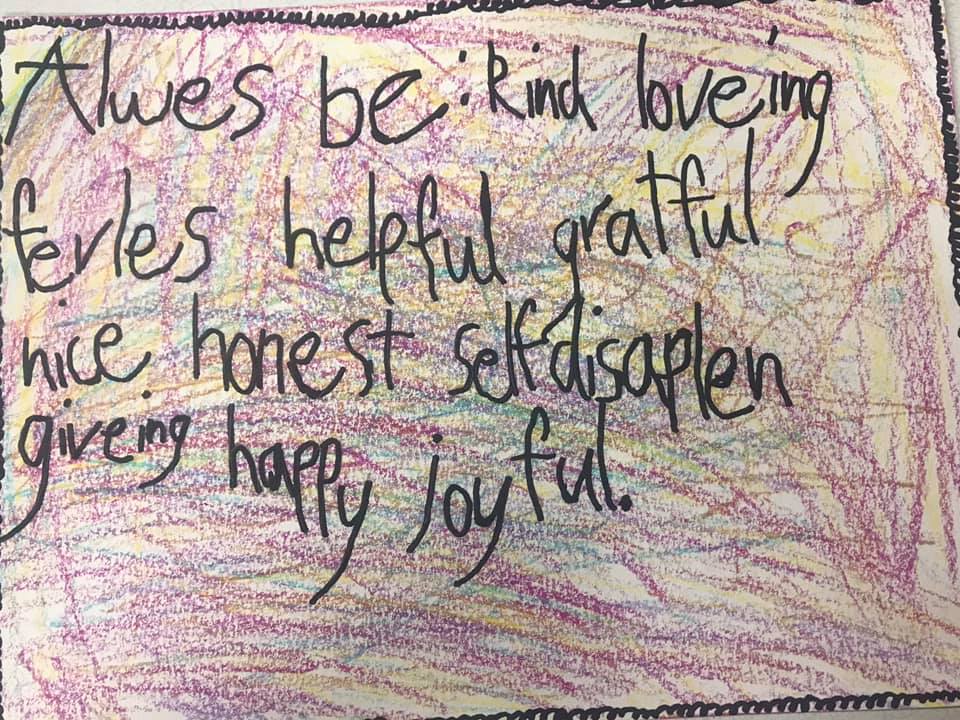 Alwes be: kind loveing
ferles helpful gratful
nice honest selfdisaplen
giveing happy joyful.